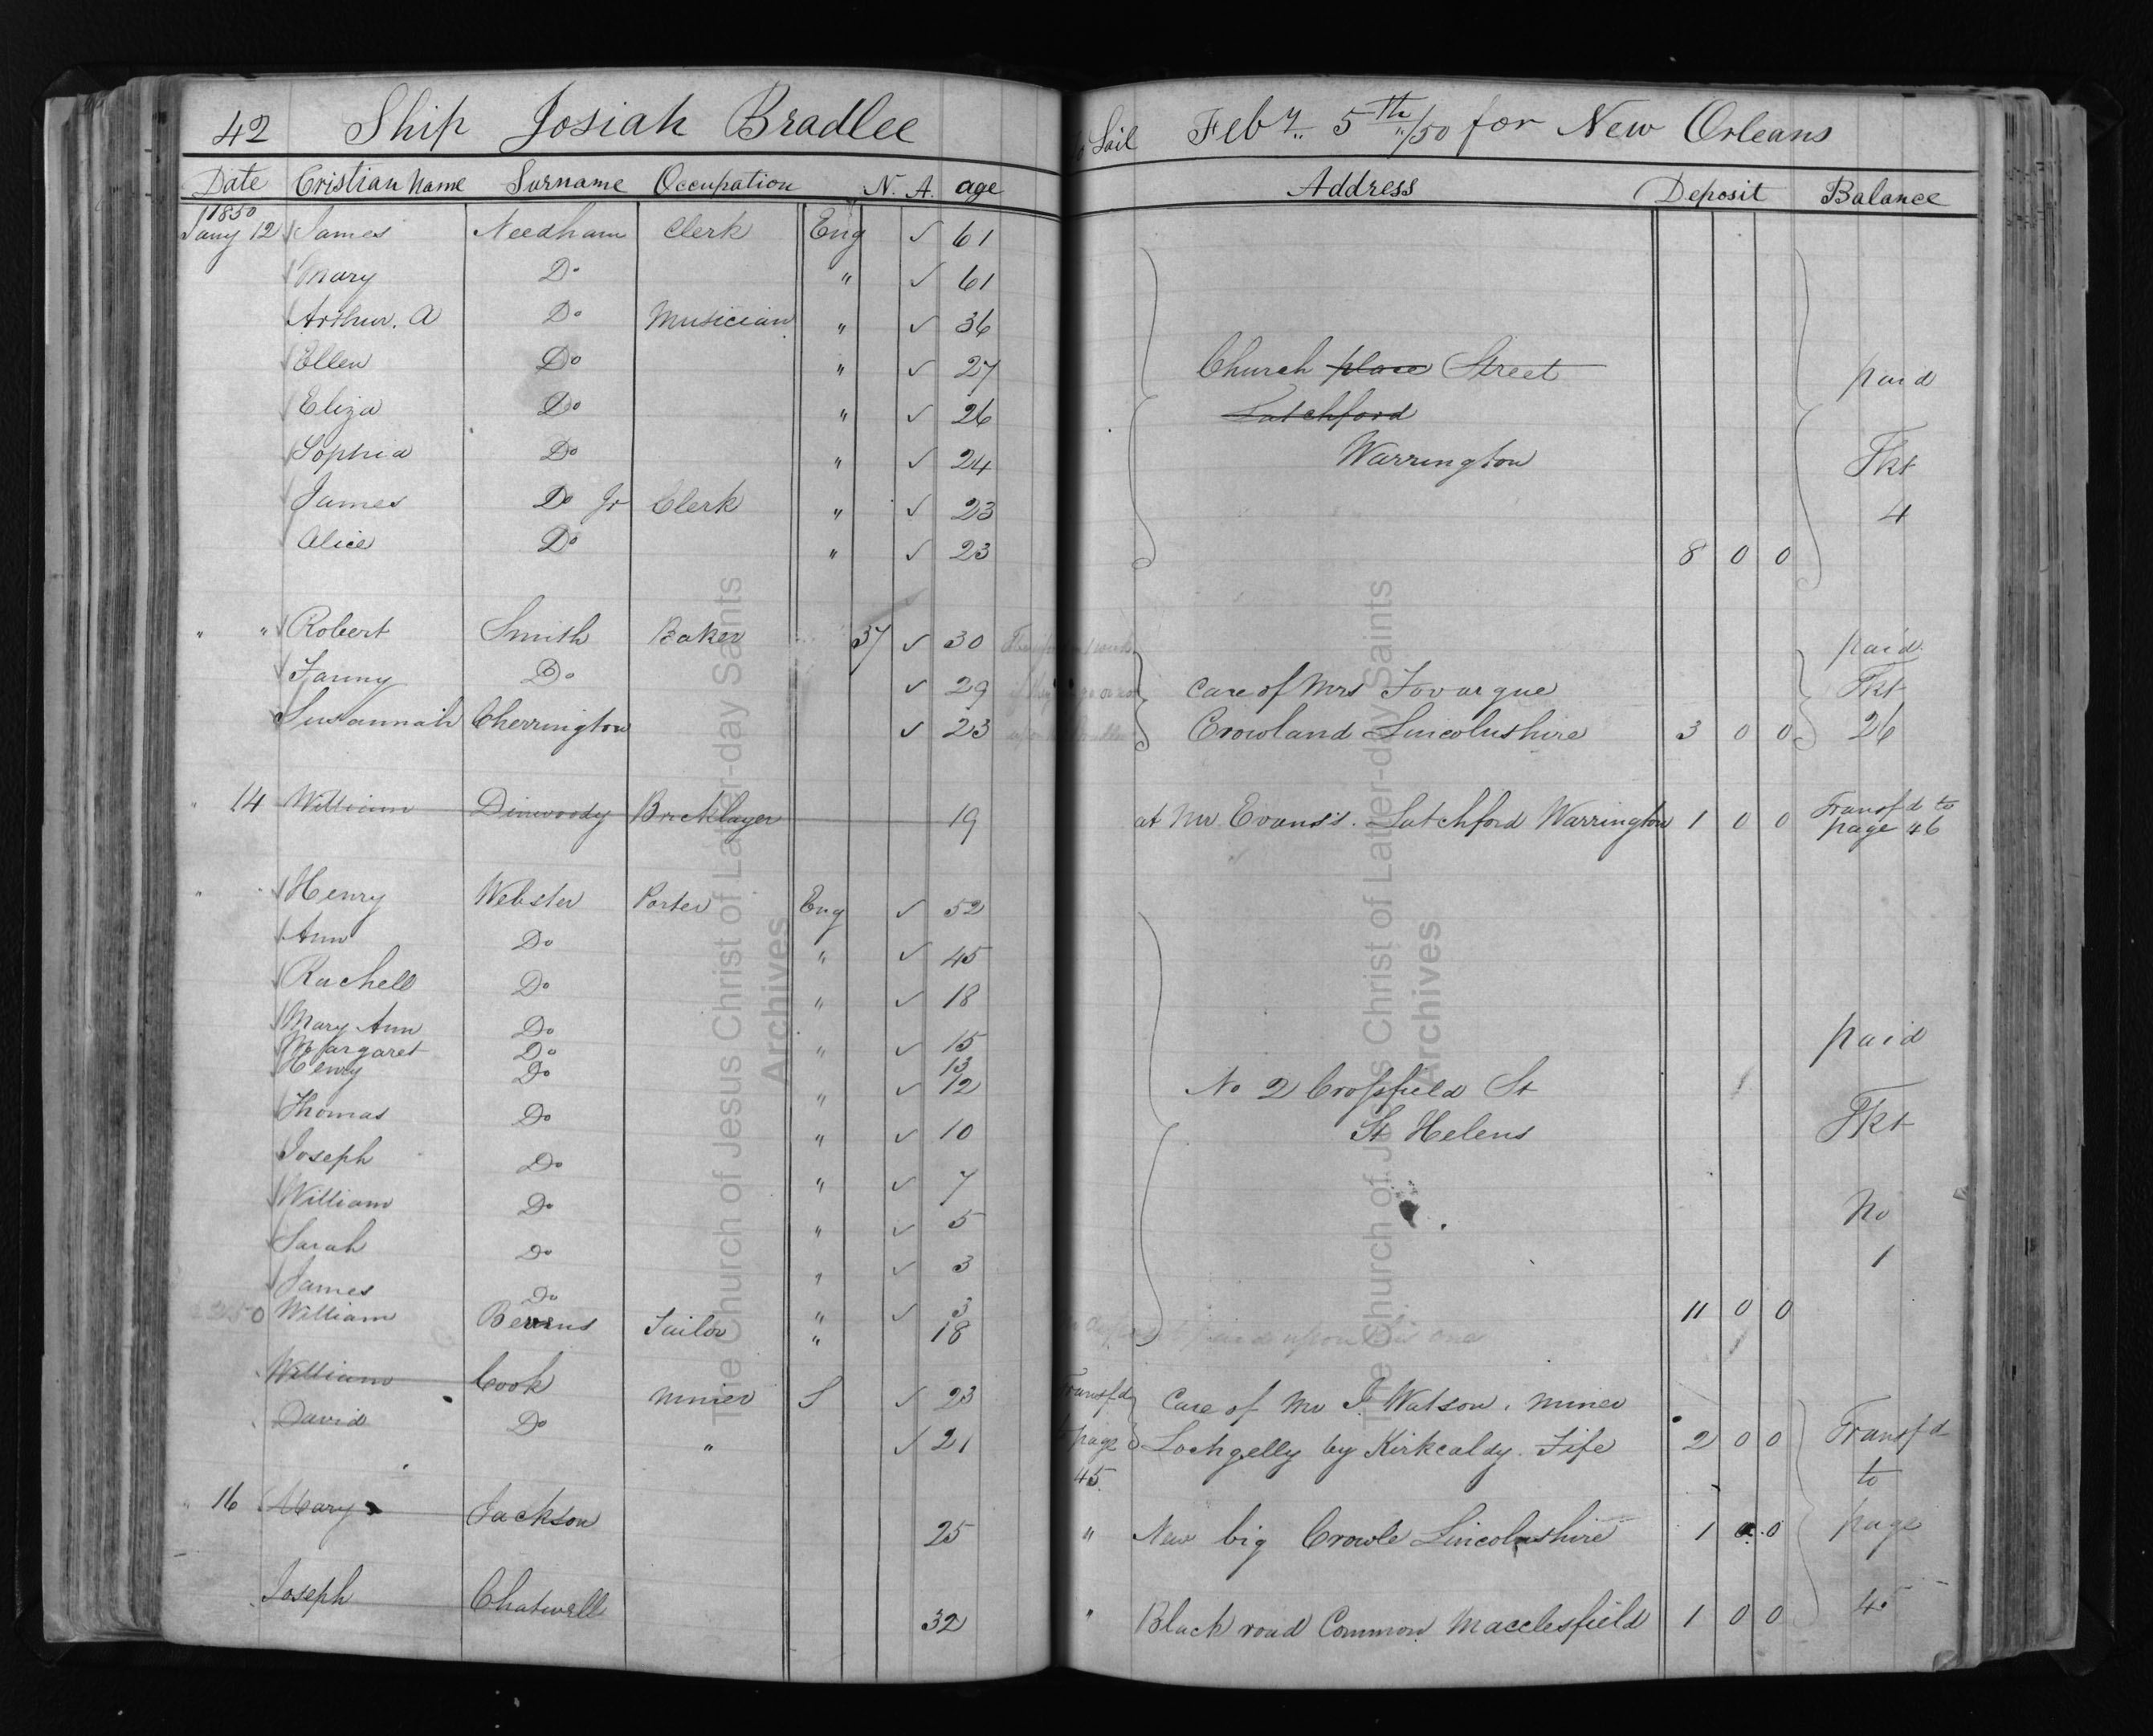 42 Ship Josiah Bradlee to Sail Feby 5th /50 for New Orleans
Date Cristian Name Surname Occupation N. A. age Address Deposit Balance
1850
Jany 12 James Needham Clerk Eng ✓ 61
Mary Do " ✓ 61
Arthur. A Do Musician " ✓ 36
Ellen Do " ✓ 27 Church place Street paid
Eliza Do " ✓ 26 Latchford
Sophia Do " ✓ 24 Warrington Tkt
James Do Jr Clerk " ✓ 23 4
Alice Do " ✓ 23 8 0 0
" " Robert Smith Baker 37 ✓ 30 paid
Fanny Do ✓ 29 Care of Mrs Fovargue Tkt
Susannah Cherrington ✓ 23 Crowland Lincolnshire 3 0 0 26
" 14 William Dinwoody Bricklayer 19 at Mr Evans's. Latchford Warrington 1 0 0 Transfd to
page 46
" " Henry Webster Porter Eng ✓ 52
Ann Do " ✓ 45
Rachell Do " ✓ 18
Mary Ann Do " ✓ 15 paid
Margaret Do 13
Henry Do " ✓ 12 No 2 Crossfield St
Thomas Do " ✓ 10 St Helens Tkt
Joseph Do " ✓ 7
William Do " ✓ 5 No
Sarah Do " ✓ 3 1
James Do " ✓ 3 11 0 0
William Bevens Tailor " 18
William Cook Miner S ✓ 23 Transfd Care of Mr J. Watson. miner
David Do " ✓ 21 to page Lochgelly by Kirkcaldy. Fife 2 0 0 Transfd
45 to
" 16 Mary Jackson 25 " New big Crowle Lincolnshire 1 0 0 page
Joseph Chatwell 32 " Black road Common Macclesfield 1 0 0 45
The Church of Jesus Christ of Latter-day Saints
Archives
The Church of Jesus Christ of Latter-day Saints
Archives